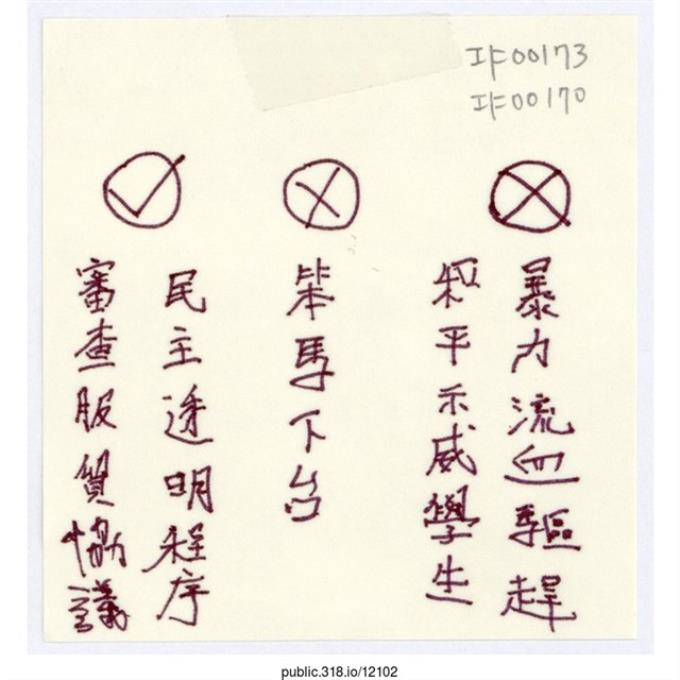 IF00173
IF00170
暴力流血驅趕
和平示威學生
笨馬下台
民主透明程序
審查服貿恊議
public.318.io/12102